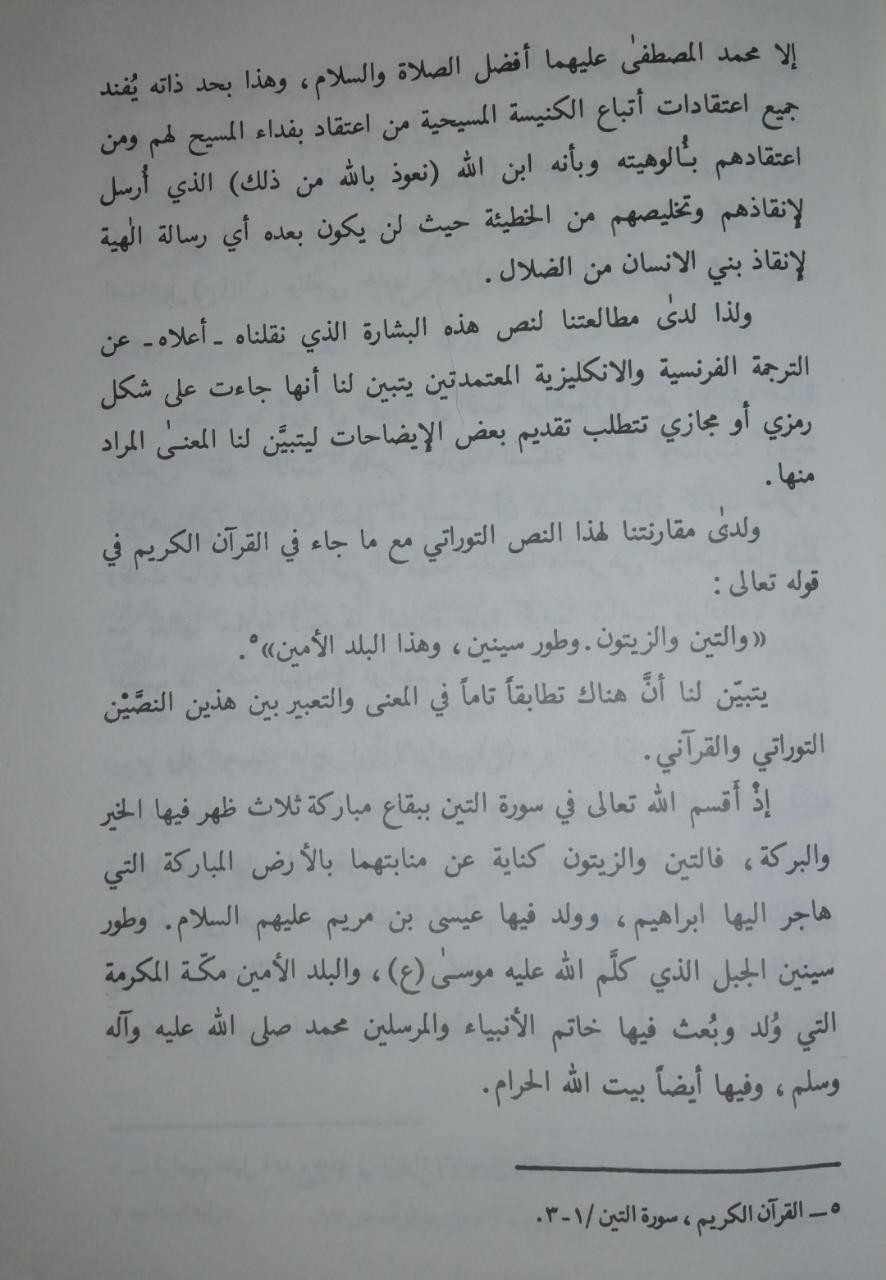 إلا محمد المصطفىٰ عليهما أفضل الصلاة والسلام، وهذا بحد ذاته يُفند
جميع اعتقادات أتباع الكنيسة المسيحية من اعتقاد بفداء المسيح لهم ومن
اعتقادهم بأُلوهيته وبأنه ابن الله (نعوذ بالله من ذلك) الذي أُرسل
لإنقاذهم وتخليصهم من الخطيئة حيث لن يكون بعده أي رسالة الٰهية
لإنقاذ بني الانسان من الضلال.
ولذا لدىٰ مطالعتنا لنص هذه البشارة الذي نقلناه ـ أعلاه ـ عن
الترجمة الفرنسية والانكليزية المعتمدتين يتبين لنا أنها جاءت على شكل
رمزي أو مجازي تتطلب تقديم بعض الإيضاحات ليتبيَّن لنا المعنـىٰ المراد
منها.
ولدىٰ مقارنتنا لهذا النص التوراتي مع ما جاء في القرآن الكريم في
قوله تعالى:
«والتين والزيتون. وطور سينين، وهذا البلد الأمين»٥.
يتبيّن لنا أنَّ هناك تطابقاً تاماً في المعنى والتعبير بين هذين النصَّيْن
التوراتي والقرآني.
إذْ أَقسم الله تعالى في سورة التين ببقاع مباركة ثلاث ظهر فيها الخير
والبركة، فالتين والزيتون كناية عن منابتهما بالأرض المباركة التي
هاجر اليها ابراهيم، وولد فيها عيسى بن مريم عليهم السلام. وطور
سينين الجبل الذي كلَّم الله عليه موسـىٰ (ع)، والبلد الأمين مكّـة المكرمة
التي وُلد وبُعث فيها خاتم الأنبياء والمرسلين محمد صلى الله عليه وآله
وسلم، وفيها أيضاً بيت الله الحرام.
٥ ـ القرآن الكريم، سورة التين /١-٣.